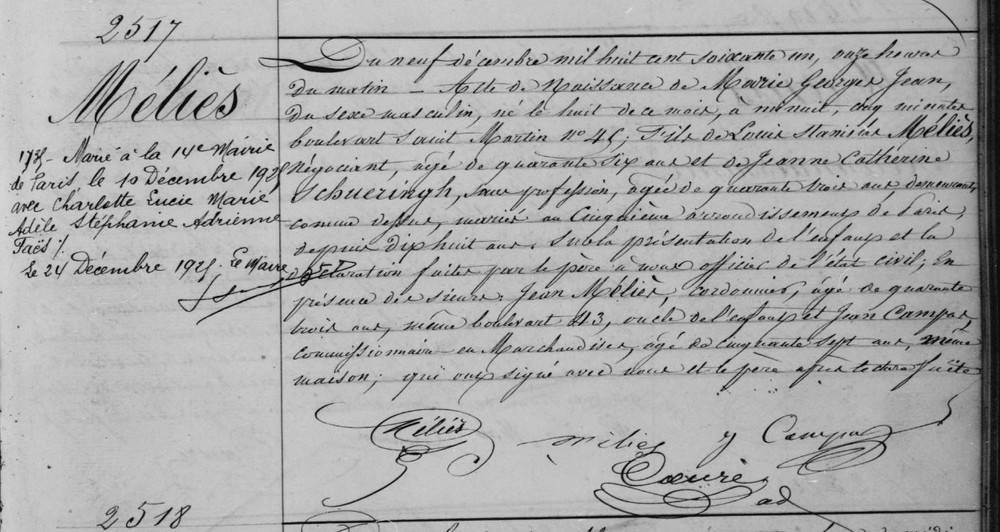 2517
Méliès
Marié à la 14e Mairie
de Paris le 10 Décembre 1925
avec Charlotte Lucie Marie
Adèle Stéphanie Adrienne
Faës
Le 24 Décembre 1925 Le Maire
Du neuf décembre mil huit cent soixante un, onze heures
du matin — Acte de Naissance de Marie Georges Jean,
du sexe masculin, né le huit de ce mois, à minuit, cinq minutes
boulevart Saint Martin No 45; Fils de Louis Stanislas Méliès,
Négociant, âgé de quarante six ans et de Jeanne Catherine
Schueringh, sans profession, âgée de quarante trois ans demeurant
comme dessus, mariés au Cinquième arrondissement de Paris,
depuis dix huit ans. Sur la présentation de l'enfant et la
déclaration faites par le père à nous officier de l'état civil; En
présence des sieurs Jean Méliès, cordonnier, âgé de quarante
trois ans, même boulevart 43, oncle de l'enfant et Jean Campas,
commissionnaire en Marchandises, âgé de cinquante sept ans, même
maison; qui ont signé avec nous et le père après lecture faite
Méliès
méliès
J Campas
2518